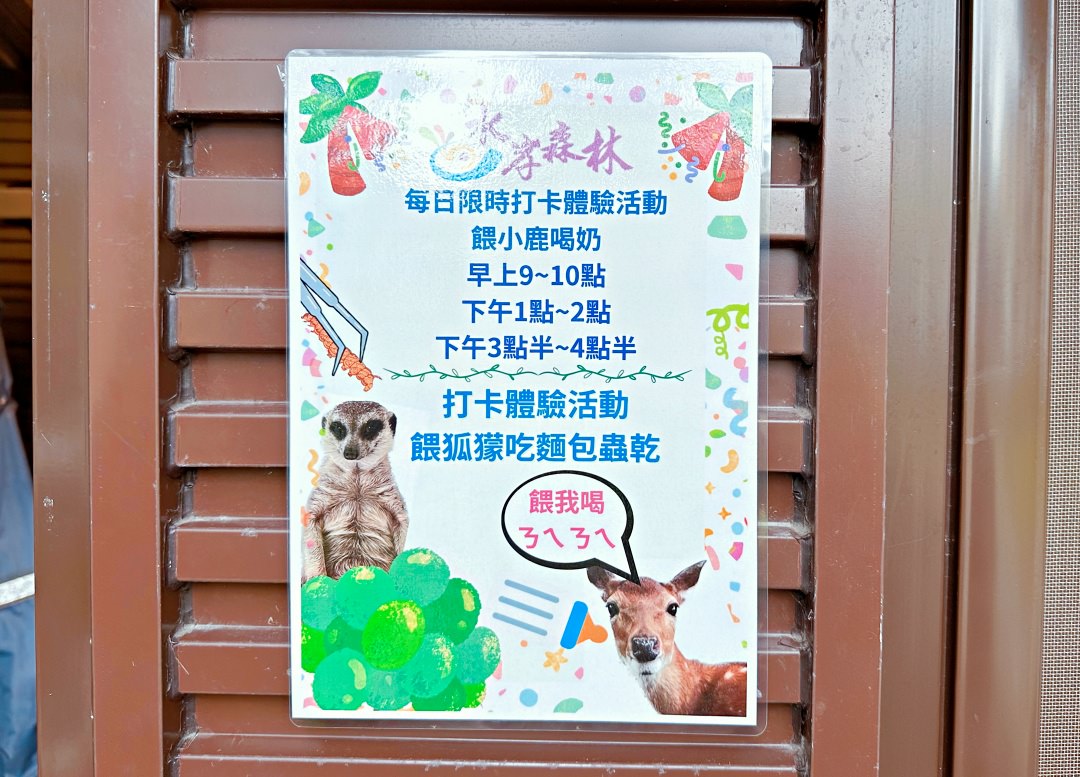 水岸森林
每日限時打卡體驗活動
餵小鹿喝奶
早上9~10點
下午1點~2點
下午3點半~4點半
打卡體驗活動
餵狐獴吃麵包蟲乾
餵我喝
ㄋㄟㄋㄟ